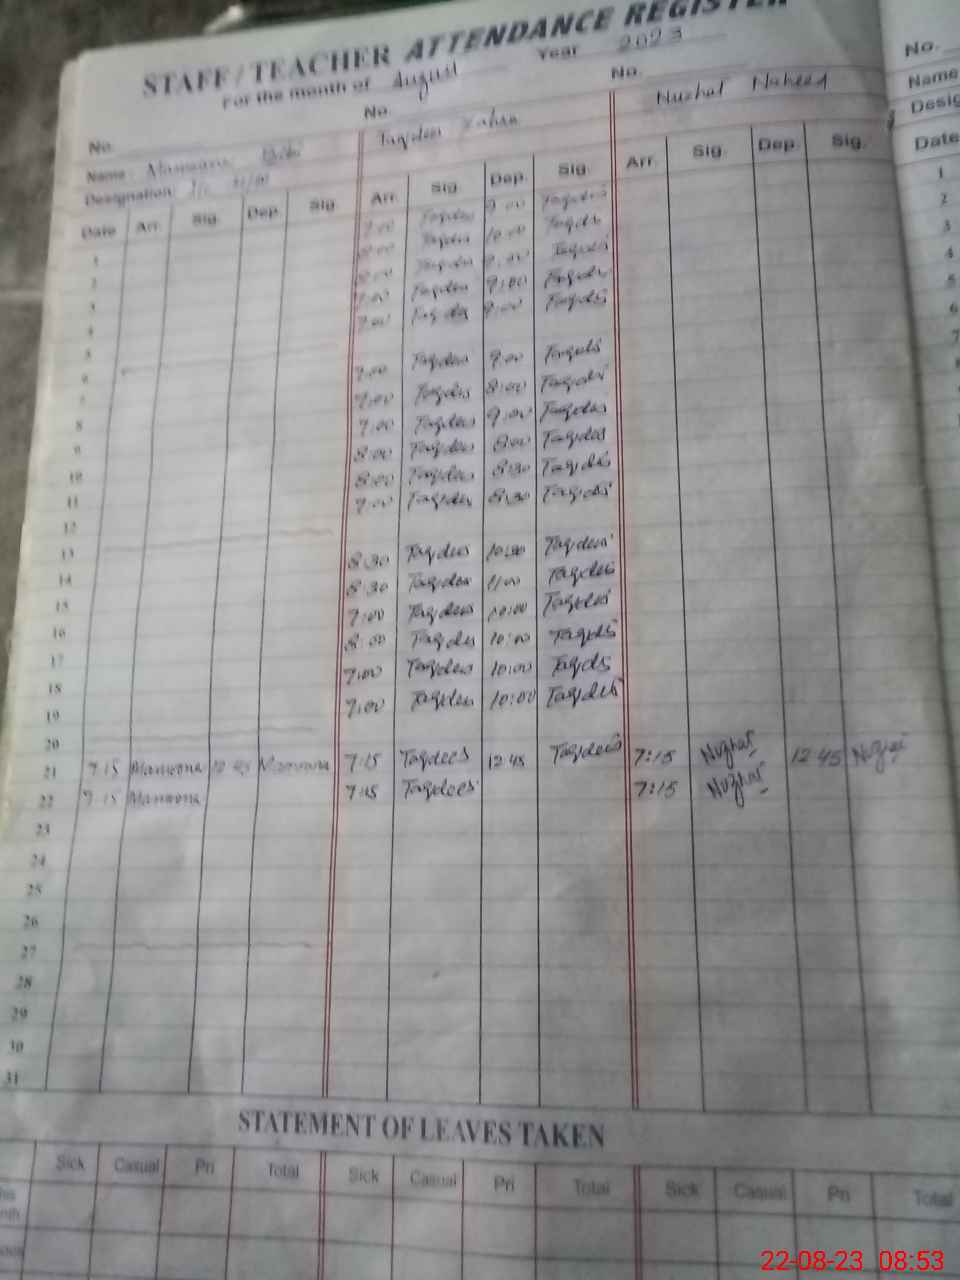 STAFF / TEACHER ATTENDANCE REGISTER
For the month of August Year 2023
No. No. No. No.
Name Bibi Taqdees Zahra Nuzhat Naheed Name
Designation Desig
Date Arr. Sig. Dep. Sig. Arr. Sig. Dep. Sig. Arr. Sig. Dep. Sig. Date
1 7:00 Taqdees 9:00 Taqdees 1
2 8:00 Taqdees 10:00 Taqdees 2
3 8:00 Taqdees 9:00 Taqdees 3
4 7:00 Taqdees 9:00 Taqdees 4
5 7:00 Taqdees 9:00 Taqdees 5
6 6
7 7:00 Taqdees 9:00 Taqdees 7
8 7:00 Taqdees 8:00 Taqdees
9 7:00 Taqdees 9:00 Taqdees
10 8:00 Taqdees 8:00 Taqdees
11 8:00 Taqdees 8:30 Taqdees
12 7:00 Taqdees 8:30 Taqdees
13
14 8:30 Taqdees 10:30 Taqdees
15 8:30 Taqdees 11:00 Taqdees
16 7:00 Taqdees 10:00 Taqdees
17 8:00 Taqdees 10:00 Taqdees
18 7:00 Taqdees 10:00 Taqdees
19 7:00 Taqdees 10:00 Taqdees
20
21 7:15 Mamoona 12:45 Mamoona 7:15 Taqdees 12:45 Taqdees 7:15 Nuzhat 12:45 Nuzhat
22 7:15 Mamoona 7:15 Taqdees 7:15 Nuzhat
23
24
25
26
27
28
29
30
31
STATEMENT OF LEAVES TAKEN
Sick Casual Pri Total Sick Casual Pri Total Sick Casual Pri Total
22-08-23 08:53